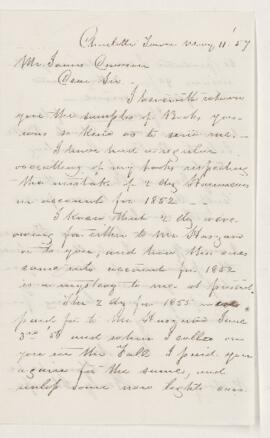 Charlotte Town 11' 57
Mr. James Dawson
Dear Sir.
I herewith return
you the samples of Books you
was so kind as to send me.—
I have had a regular
of my books respecting
the mistake of 2 dz
in account for 1852 —
I know that 2 dz were
owing for either to Mr
or to you, and how this
came into account for 1852
is a mystery to me at present
The 2 dz for 1855
paid for to June
3rd 56 and when I called on
you in the Fall I paid you
again for the same, and
unless some new light